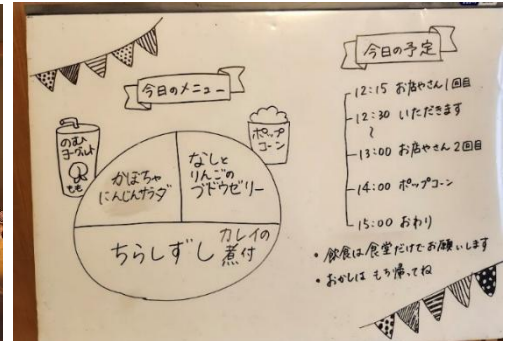 今日のメニュー
のむ
ヨーグルト
もも
ポップ
コーン
かぼちゃ
にんじんサラダ
なしと
りんごの
ブドウゼリー
ちらしずし
カレイの
煮付
今日の予定
12:15 お店やさん1回目
12:30 いただきます
〜
13:00 お店やさん2回目
14:00 ポップコーン
15:00 おわり
・飲食は食堂だけでお願いします
・おかしは もち帰ってね